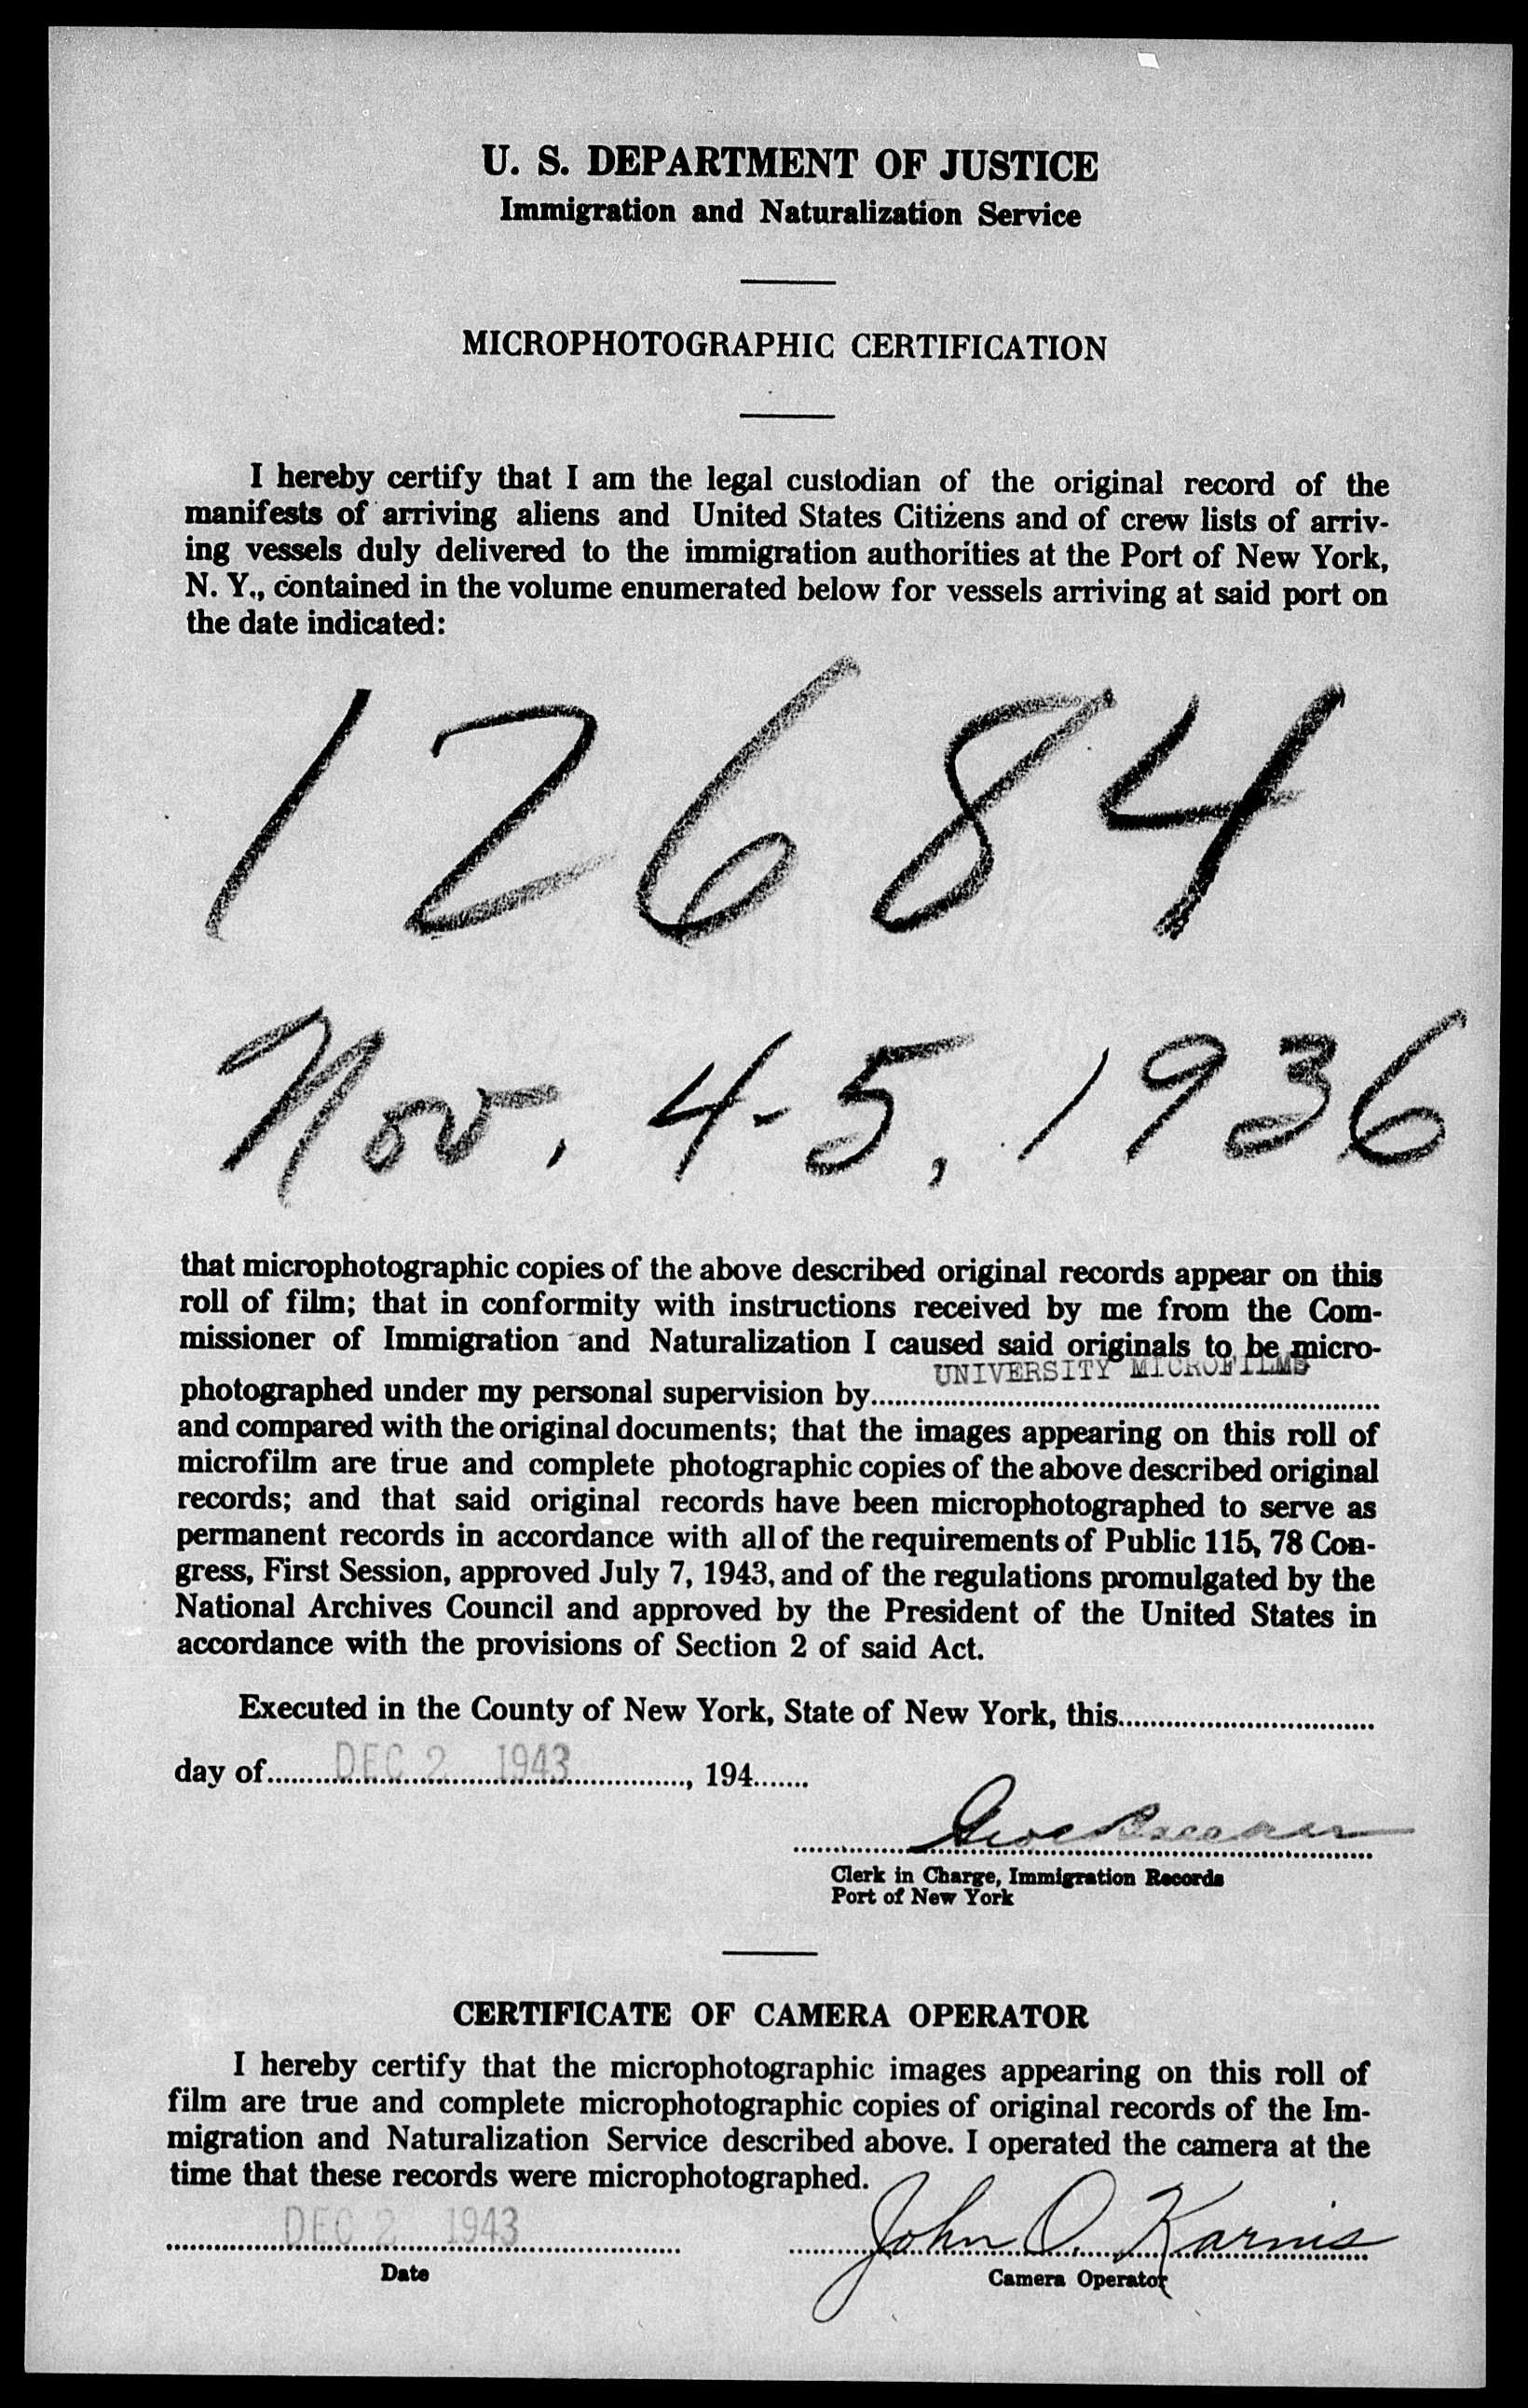 U. S. DEPARTMENT OF JUSTICE
Immigration and Naturalization Service
MICROPHOTOGRAPHIC CERTIFICATION
I hereby certify that I am the legal custodian of the original record of the
manifests of arriving aliens and United States Citizens and of crew lists of arriv-
ing vessels duly delivered to the immigration authorities at the Port of New York,
N. Y., contained in the volume enumerated below for vessels arriving at said port on
the date indicated:
12684
Nov. 4-5, 1936
that microphotographic copies of the above described original records appear on this
roll of film; that in conformity with instructions received by me from the Com-
missioner of Immigration and Naturalization I caused said originals to be micro-
UNIVERSITY MICROFILMS
photographed under my personal supervision by
and compared with the original documents; that the images appearing on this roll of
microfilm are true and complete photographic copies of the above described original
records; and that said original records have been microphotographed to serve as
permanent records in accordance with all of the requirements of Public 115, 78 Con-
gress, First Session, approved July 7, 1943, and of the regulations promulgated by the
National Archives Council and approved by the President of the United States in
accordance with the provisions of Section 2 of said Act.
Executed in the County of New York, State of New York, this
day of DEC 2 1943, 194
Clerk in Charge, Immigration Records
Port of New York
CERTIFICATE OF CAMERA OPERATOR
I hereby certify that the microphotographic images appearing on this roll of
film are true and complete microphotographic copies of original records of the Im-
migration and Naturalization Service described above. I operated the camera at the
time that these records were microphotographed.
DEC 2 1943 John O. Karnis
Date
Camera Operator